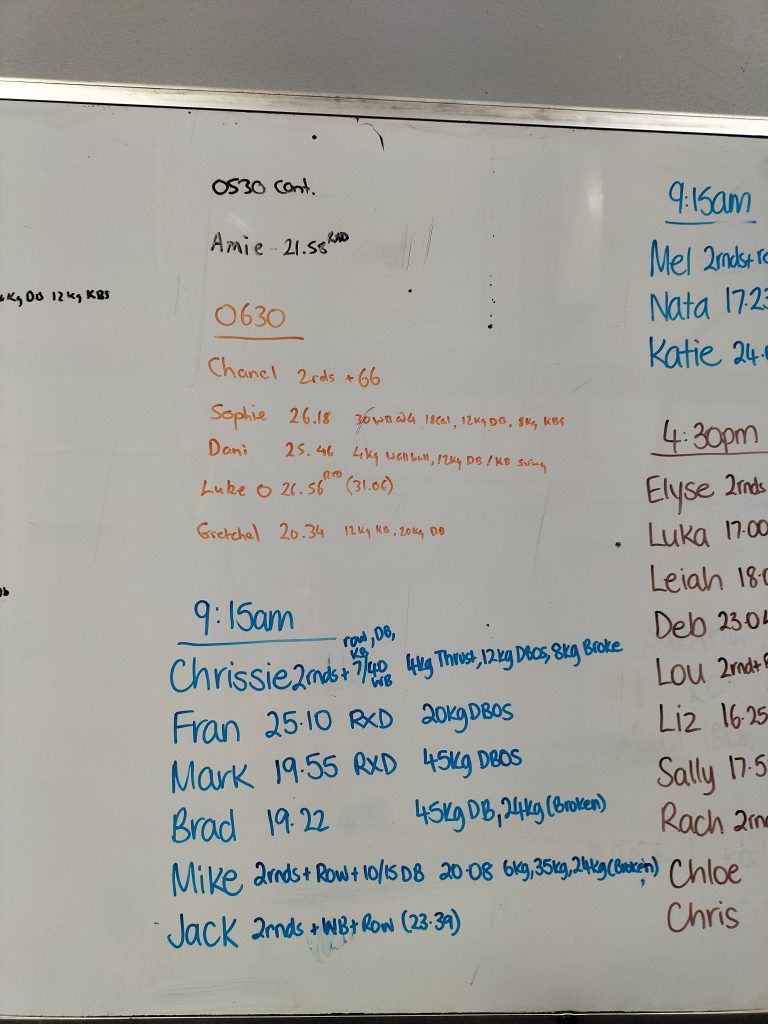 0530 Cont.
Amie - 21.58 RXD
Kg DB 12kg KBS
0630
Chanel 2rds + 66
Sophie 26.18 30WB @4 18cal, 12kg DB, 8kg KBS
Dani 25.46 4kg wallball, 12kg DB / KB swing
Luke O 26.56 RXD (31.06)
Gretchel 20.34 12kg KB, 20kg DB
9:15am
row, DB,
KB
Chrissie 2rnds + 7/40 WB 4kg Thrust, 12kg DBOS, 8kg Broke
Fran 25.10 RXD 20kg DBOS
Mark 19.55 RXD 45kg DBOS
Brad 19.22 45kg DB, 24kg (Broken)
Mike 2rnds + Row + 10/15 DB 20.08 6kg, 35kg, 24kg (Broken)
Jack 2rnds + WB + Row (23.39)
9:15am
Mel 2rnds+
Nata 17.23
Katie 24.
4:30pm
Elyse 2rnds
Luka 17.00
Leiah 18.
Deb 23.04
Lou 2rnd+
Liz 16.25
Sally 17.5
Rach 2rn
Chloe
Chris